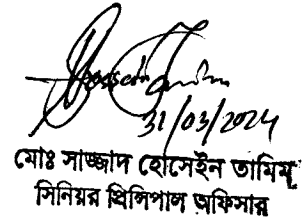 31/03/2024
মোঃ সাজ্জাদ হোসেইন তামিম
সিনিয়র প্রিন্সিপাল অফিসার